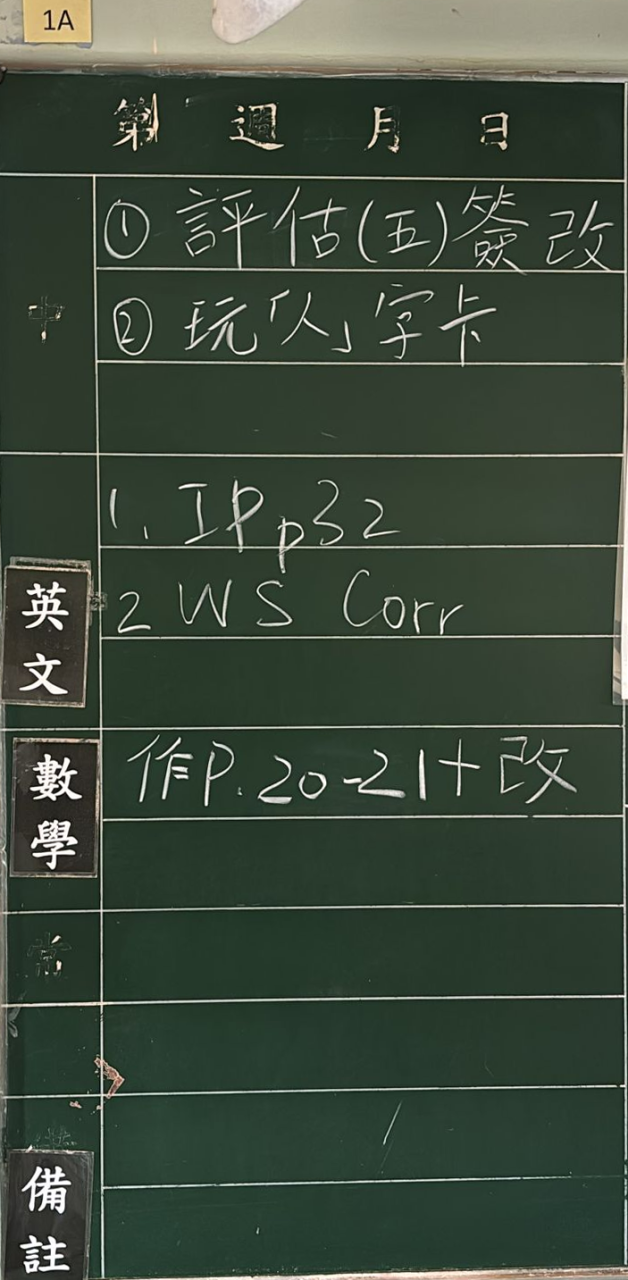 1A
第 週 月 日
中
① 評估(五)簽改
② 玩「人」字卡
英文
1. IP p32
2 WS Corr
數學
作P.20-21+改
常
備註